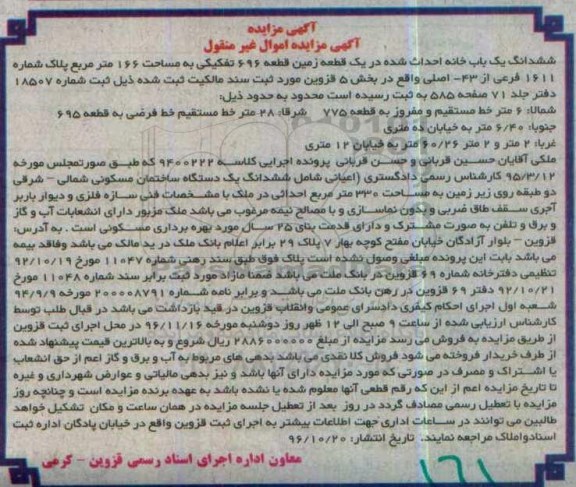 آگهی مزایده
آگهی مزایده اموال غیر منقول
ششدانگ یک باب خانه احداث شده در یک قطعه زمین قطعه ۶۹۶ تفکیکی به مساحت ۱۶۶ متر مربع پلاک شماره
۱۶۱۱ فرعی از ۴۳- اصلی واقع در بخش ۵ قزوین مورد ثبت سند مالکیت ثبت شده ذیل ثبت شماره ۱۸۵۰۷
دفتر جلد ۷۱ صفحه ۵۸۵ به ثبت رسیده است محدود به حدود ذیل:
شمالا: ۶ متر خط مستقیم و مفروز به قطعه ۷۷۵ شرقا: ۲۸ متر خط مستقیم خط فرضی به قطعه ۶۹۵
جنوبا: ۶/۴۰ متر به خیابان ده متری
غربا: ۲ متر و ۲ متر ۶۰/۲۶ متر به خیابان ۱۲ متری
ملکی آقایان حسین قربانی و حسن قربانی پرونده اجرایی کلاسه ۹۴۰۰۲۲۲ که طبق صورتمجلس مورخه
۹۵/۳/۱۲ کارشناس رسمی دادگستری (اعیانی شامل ششدانگ یک دستگاه ساختمان مسکونی شمالی - شرقی
دو طبقه روی زیر زمین به مساحت ۳۳۰ متر مربع احداثی در ملک با مشخصات فنی سازه فلزی و دیوار باربر
آجری سقف طاق ضربی و بدون نماسازی و با مصالح نیمه مرغوب می باشد ملک مزبور دارای انشعابات آب و گاز
و برق و تلفن به صورت مشترک و دارای قدمت بنای ۲۵ سال مورد بهره برداری مسکونی است . به آدرس:
قزوین - بلوار آزادگان خیابان مفتح کوچه بهار ۷ پلاک ۲۹ برابر اعلام بانک ملک در ید مالک می باشد وفاقد بیمه
می باشد بابت این پرونده مبلغی وصول نشده است پلاک فوق طبق سند رهنی شماره ۱۱۰۴۷ مورخ ۹۲/۱۰/۱۹
تنظیمی دفترخانه شماره ۶۹ قزوین در بانک ملت می باشد ضمنا مازاد مورد ثبت برابر سند شماره ۱۱۰۴۸ مورخ
۹۲/۱۰/۲۱ دفتر ۶۹ قزوین در رهن بانک ملت می باشد و برابر نامه شماره ۲۰۰۰۰۸۷۹۱ مورخه ۹۴/۹/۹
شعبه اول اجرای احکام کیفری دادسرای عمومی وانقلاب قزوین در قید بازداشت می باشد در قبال طلب توسط
کارشناس ارزیابی شده از ساعت ۹ صبح الی ۱۲ ظهر روز دوشنبه مورخه ۹۶/۱۱/۱۶ در محل اجرای ثبت قزوین
از طریق مزایده به فروش می رسد مزایده از مبلغ ۲۸۸۶۰۰۰۰۰۰ ریال شروع و به بالاترین قیمت پیشنهاد شده
از طرف خریدار فروخته می شود فروش کلا نقدی می باشد بدهی های مربوط به آب و برق و گاز اعم از حق انشعاب
یا اشتراک و مصرف در صورتی که مورد مزایده دارای آنها باشد و نیز بدهی مالیاتی و عوارض شهرداری و غیره
تا تاریخ مزایده اعم از این که رقم قطعی آنها معلوم شده یا نشده باشد به عهده برنده مزایده است و چنانچه روز
مزایده با تعطیل رسمی مصادف گردد در روز بعد از تعطیل جلسه مزایده در همان ساعت و مکان تشکیل خواهد
طالبین می توانند در ساعات اداری جهت اطلاعات بیشتر به اجرای ثبت قزوین واقع در خیابان پادگان اداره ثبت
اسنادواملاک مراجعه نمایند. تاریخ انتشار: ۹۶/۱۰/۲۰
معاون اداره اجرای اسناد رسمی قزوین - کرمی
۱۶۱